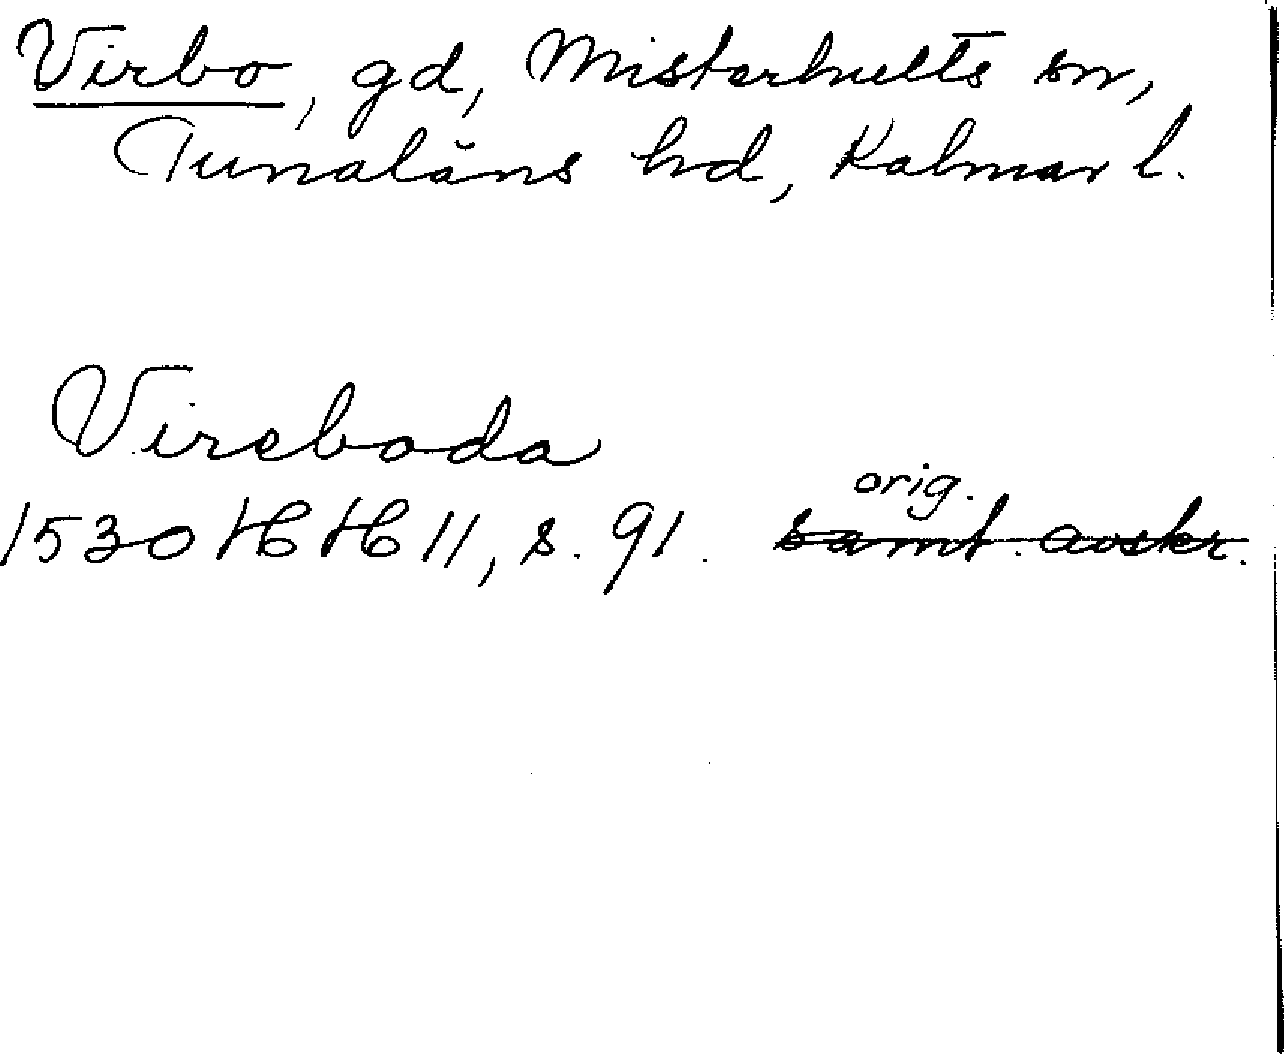 Virbo, gd, Misterhults sn,
Tunaläns hd, Kalmar l.
Vireboda
orig.
1530 HH 11, s. 91. samt. avskr.